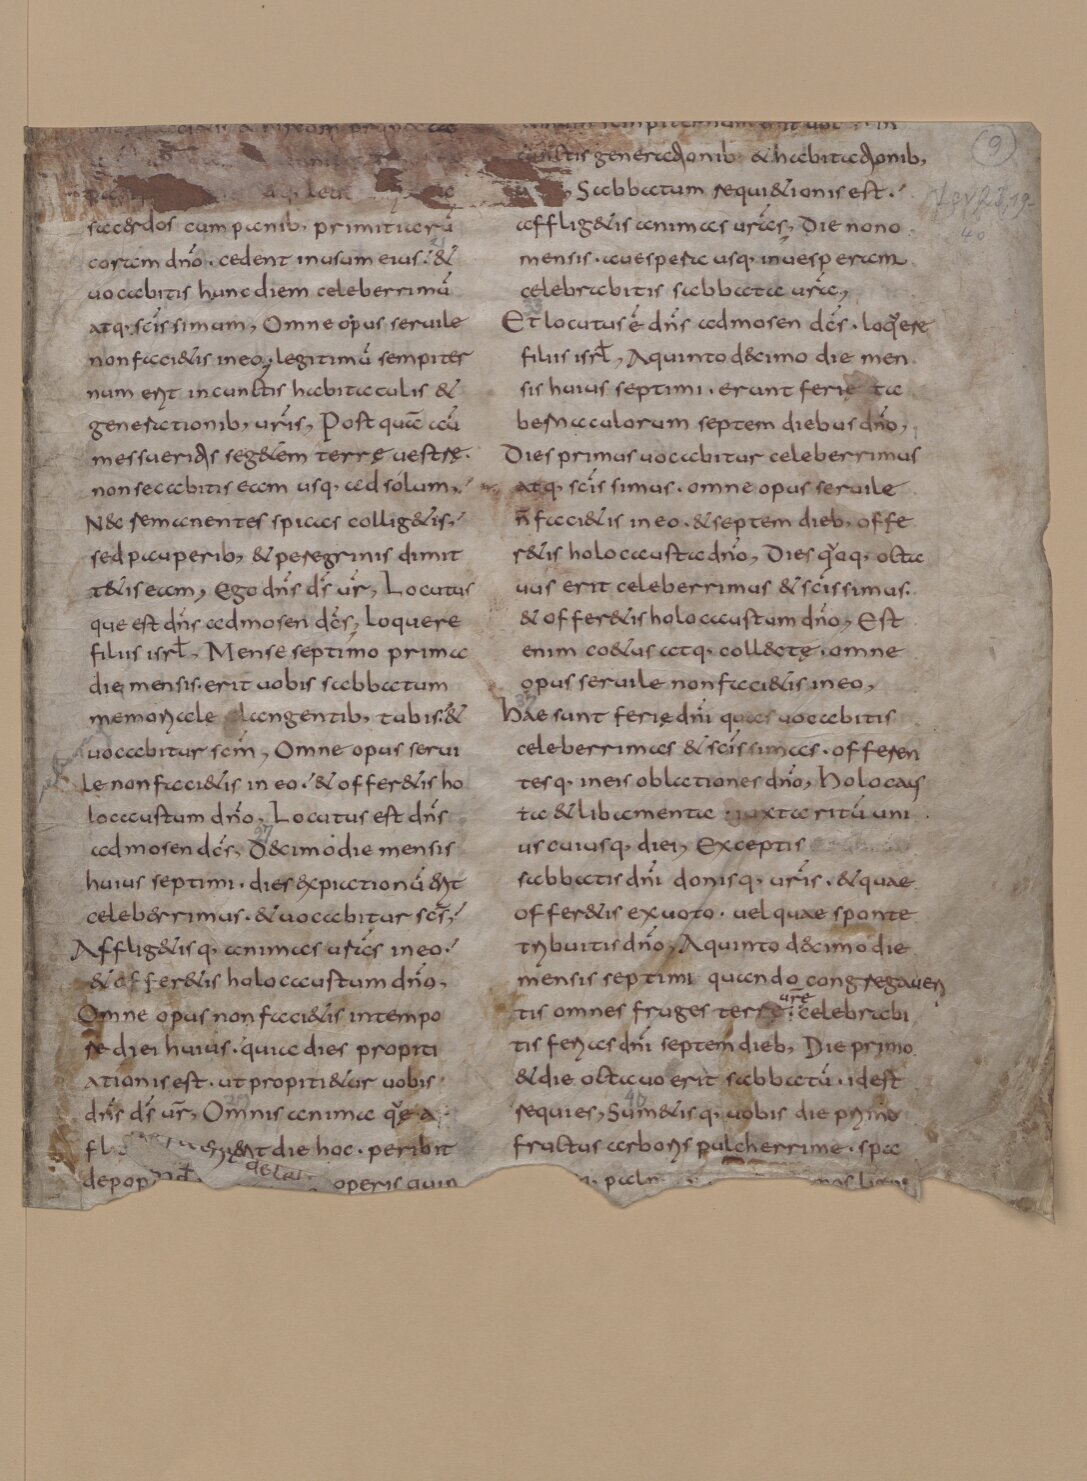 sacerdos cum panib; primitiarū
coram dn̄o · cedent in usum eius · &
uocabitis hunc diem celeberrimū
atq; sc̄issimum; Omne opus seruile
non faci&is in eo; legitimū sempiter
num erit in cunctis habitaculis &
generationib; ur̄is; Postquā aū
messueritis seg&em terrę uestrę ·
non secabitis eam usq; ad solum;
Nec remanentes spicas collig&is;
sed pauperib; & peregrinis dimit
t&is eam; Ego dn̄s d̄s ur̄; Locutus
que est dn̄s ad mosen dc̄s; Loquere
filiis isrl̄; Mense septimo prima
die mensis · erit uobis sabbatum
memoriale clangentib; tubis · &
uocabitur sc̄m; Omne opus serui
le non faci&is in eo · & offer&is ho
locaustum dn̄o; Locutus est dn̄s
ad mosen dc̄s; Decimo die mensis
huius septimi · dies expiationū erit
celeberrimus · & uocabitur sc̄s;
Afflig&isq; animas ur̄as in eo ·
& offer&is holocaustum dn̄o;
Omne opus non faci&is in tempo
re diei huius · quia dies propiti
ationis est · ut propiti&ur uobis
dn̄s d̄s ur̄; Omnis anima quę a
fl die hoc · peribit
de pop operis quip
(9)
cunctis generationib; & habitationib;
Sabbatum requi&ionis est ·
afflig&is animas ur̄as; Die nono
mensis · a uespera usq; in uesperam
celebrabitis sabbata ur̄a;
Et locutus ē dn̄s ad mosen dc̄s · loquere
filiis isrl̄; A quinto decimo die men
sis huius septimi · erunt ferię ta
bernaculorum septem diebus dn̄o;
Dies primus uocabitur celeberrimus
atq; sc̄issimus · omne opus seruile
n̄ faci&is in eo · & septem dieb; offe
r&is holocausta dn̄o; Dies quoq; octa
uus erit celeberrimus & sc̄issimus ·
& offer&is holocaustum dn̄o; Est
enim co&us atq; collectę · omne
opus seruile non faci&is in eo;
Hae sunt ferię dn̄i quas uocabitis
celeberrimas & sc̄issimas · offeren
tesq; in eis oblationes dn̄o; Holocaus
ta & libamenta · iuxta ritū uni
us cuiusq; diei; Exceptis
sabbatis dn̄i donisq; ur̄is · & quae
offer&is ex uoto · uel quae sponte
tribuitis dn̄o; A quinto decimo die
mensis septimi quando congregaueri
tis omnes fruges terrę ur̄ę celebrabi
tis ferias dn̄i septem dieb; Die primo
& die octauo erit sabbatū · id est
requies; Sum&isq; uobis die primo
fructus arboris pulcherrime · spa